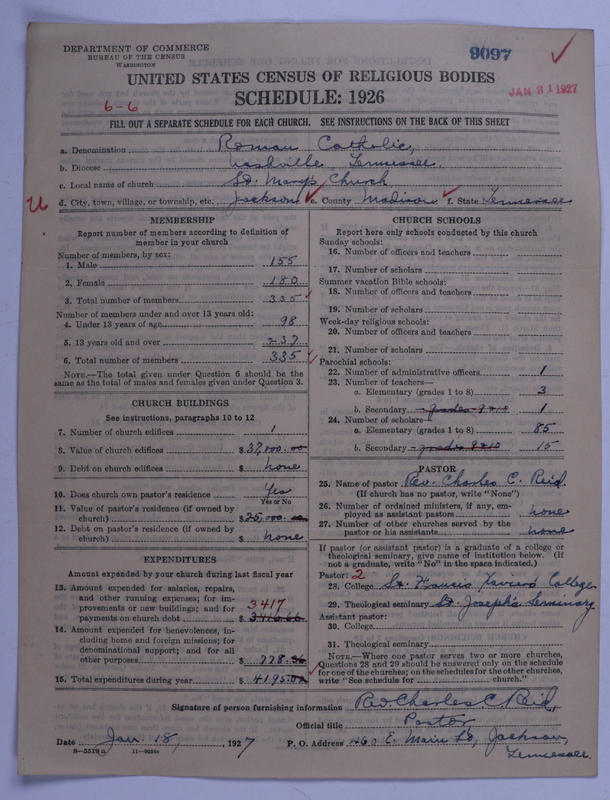 DEPARTMENT OF COMMERCE
BUREAU OF THE CENSUS
WASHINGTON
9097
UNITED STATES CENSUS OF RELIGIOUS BODIES
SCHEDULE: 1926
JAN 31 1927
6-6
FILL OUT A SEPARATE SCHEDULE FOR EACH CHURCH. SEE INSTRUCTIONS ON THE BACK OF THIS SHEET
a. Denomination Roman Catholic,
b. Diocese Nashville Tennessee.
c. Local name of church St. Mary's Church
d. City, town, village, or township, etc. Jackson e. County Madison f. State Tennessee
MEMBERSHIP
Report number of members according to definition of
member in your church
Number of members, by sex:
1. Male 155
2. Female 180
3. Total number of members 335
Number of members under and over 13 years old:
4. Under 13 years of age 98
5. 13 years old and over 237
6. Total number of members 335
NOTE.—The total given under Question 6 should be the
same as the total of males and females given under Question 3.
CHURCH BUILDINGS
See instructions, paragraphs 10 to 12
7. Number of church edifices 1
8. Value of church edifices $ 37,000.00
9. Debt on church edifices $ none
10. Does church own pastor's residence Yes
Yes or No
11. Value of pastor's residence (if owned by
church) $ 25,000.00
12. Debt on pastor's residence (if owned by
church) $ none
EXPENDITURES
Amount expended by your church during last fiscal year
13. Amount expended for salaries, repairs,
and other running expenses; for im-
provements or new buildings; and for
payments on church debt $ 3416.66
3417
14. Amount expended for benevolences, in-
cluding home and foreign missions; for
denominational support; and for all
other purposes $ 778.36
15. Total expenditures during year $ 4195.02
CHURCH SCHOOLS
Report here only schools conducted by this church
Sunday schools:
16. Number of officers and teachers
17. Number of scholars
Summer vacation Bible schools:
18. Number of officers and teachers
19. Number of scholars
Week-day religious schools:
20. Number of officers and teachers
21. Number of scholars
Parochial schools:
22. Number of administrative officers 1
23. Number of teachers—
a. Elementary (grades 1 to 8) 3
b. Secondary grades 9 & 10 1
24. Number of scholars—
a. Elementary (grades 1 to 8) 85
b. Secondary grades 9 & 10 15
PASTOR
25. Name of pastor Rev. Charles C. Reid.
(If church has no pastor, write "None")
26. Number of ordained ministers, if any, em-
ployed as assistant pastors none
27. Number of other churches served by the
pastor or his assistants none
If pastor (or assistant pastor) is a graduate of a college or
theological seminary, give name of institution below. (If
not a graduate, write "No" in the space indicated.)
Pastor: 2
28. College St. Francis Xaviers College
29. Theological seminary St. Joseph's Seminary
Assistant pastor:
30. College
31. Theological seminary
NOTE.—Where one pastor serves two or more churches,
Questions 28 and 29 should be answered only on the schedule
for one of the churches; on the schedules for the other churches,
write "See schedule for church."
Signature of person furnishing information Rev. Charles C. Reid,
Official title Pastor
Date Jan. 18, 1927 P. O. Address 460 E. Main St, Jackson,
Tennessee.
8-5519a 11-9034